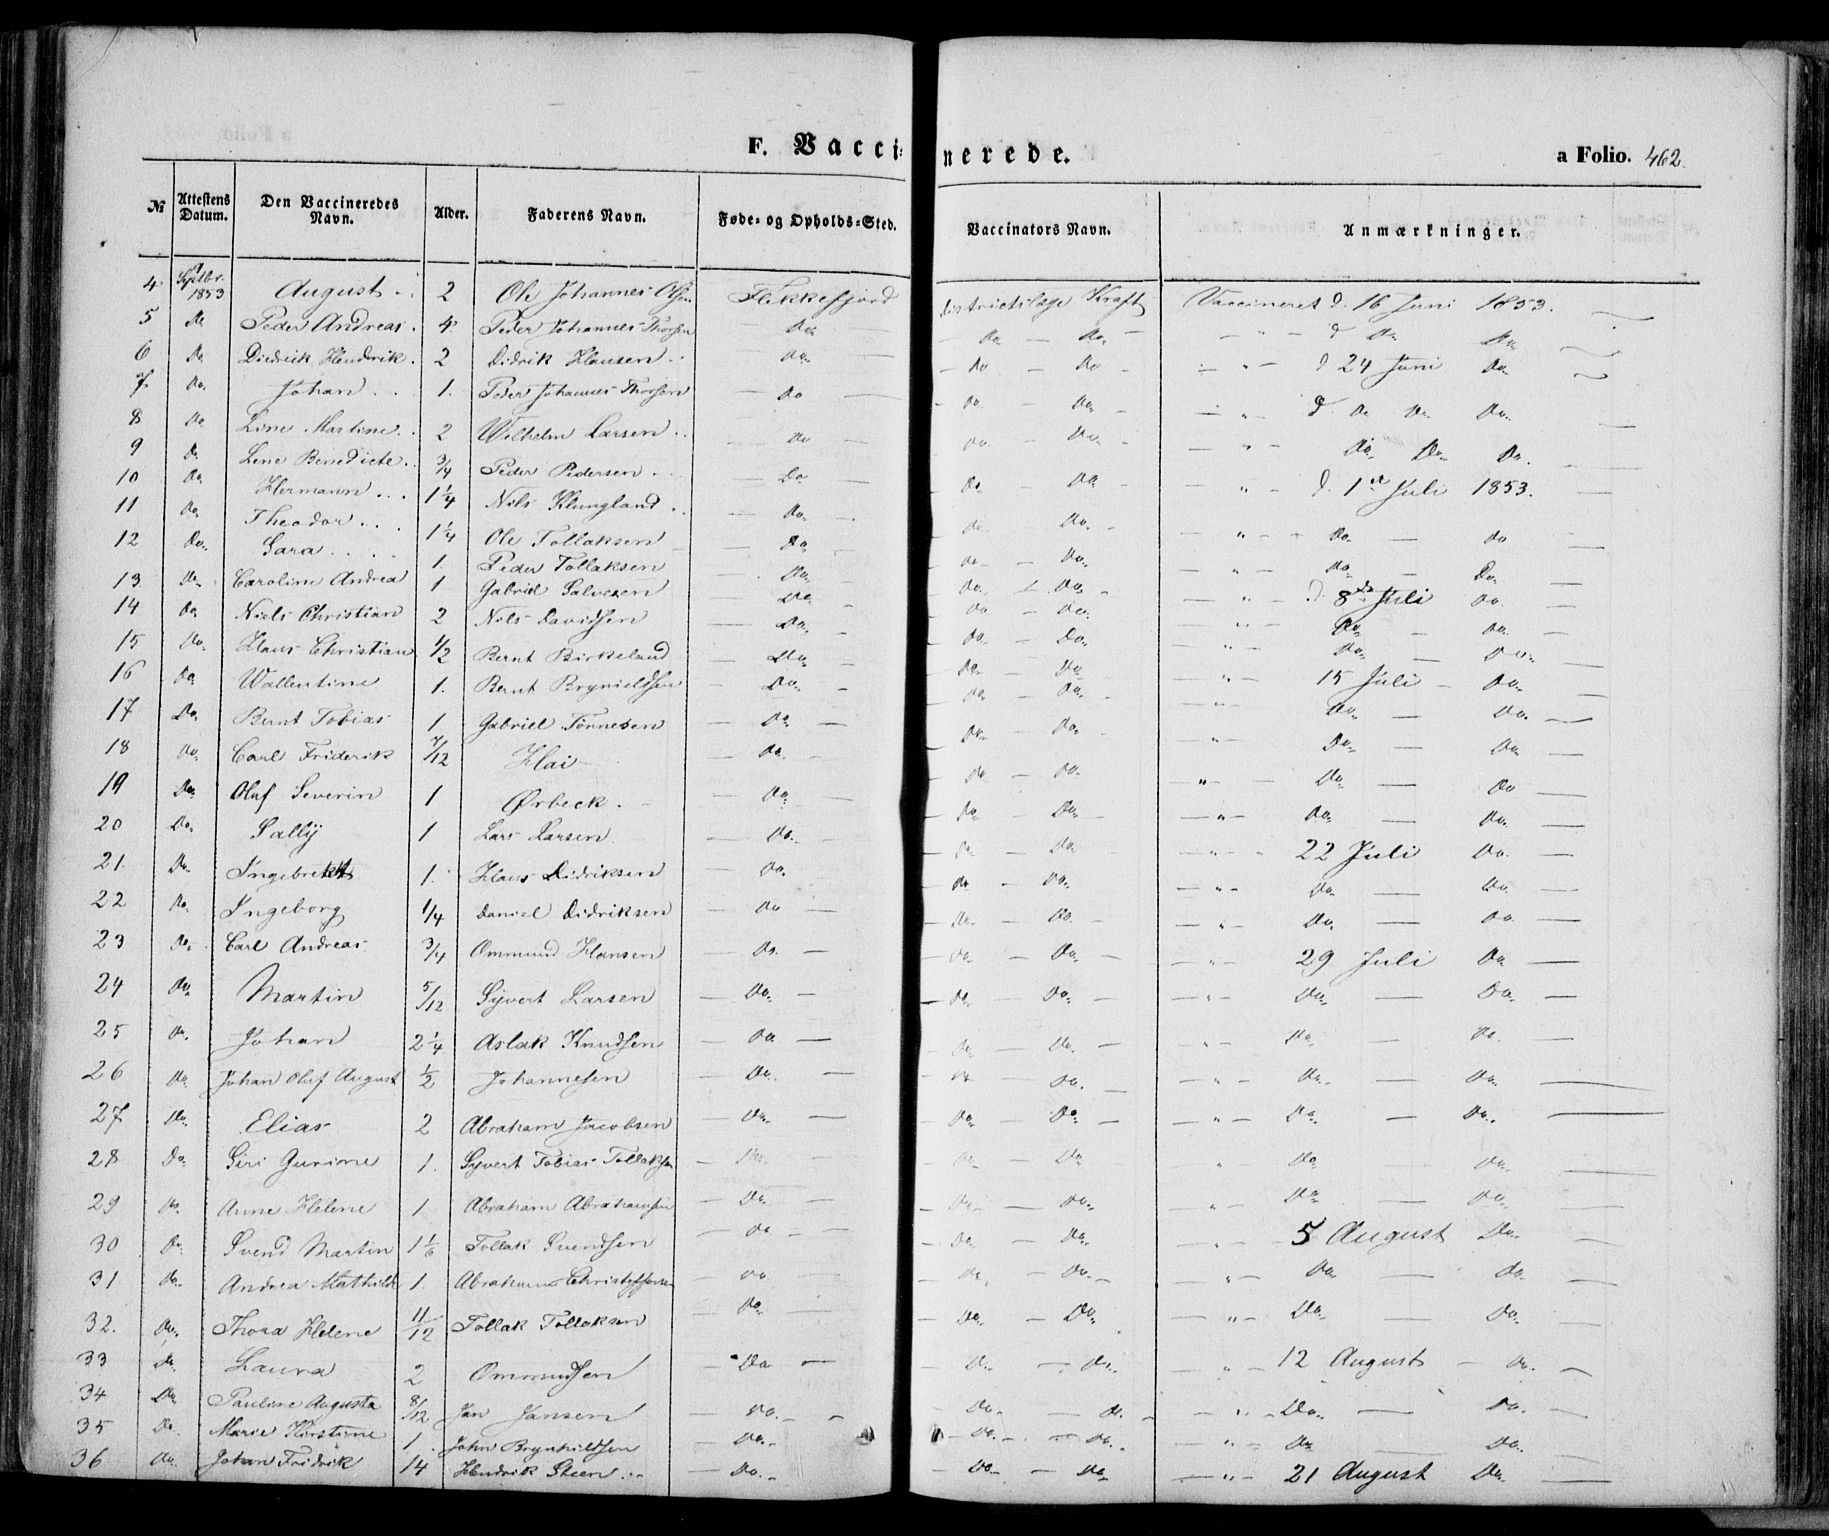 F. Vaccinerede. a Folio. 462.
№ Attestens Datum. Den Vaccineredes Navn. Alder. Faderens Navn. Føde- og Opholds-Sted. Vaccinators Navn. Anmærkninger.
4 Septbr. 1853 August 2 Ole Johannes Olsen Flekkefjord Districtslæge Kraft Vaccineret d. 16 Juni 1853.
5 Do Peder Andreas 4 Peder Johannes Thorsen — Do — Do — Do — „ d Do Do
6 Do Diedrik Hendrik 2 Didrik Hansen Do — Do — Do — „ — d 24 Juni Do
7 Do Johan 1. Peder Johannes Thorsen — Do — Do — Do — „ — d. Do Do Do
8 Do Line Martine 2 Wilhelm Larsen — Do — Do — Do — „ — Do Do Do
9 Do Lene Benedicte 3/4 Peder Pedersen — Do — Do — Do — „ — d. 1st Juli 1853.
10 Do Hermann 1 1/4 Nils Klungland — Do — Do — Do — „ — Do — Do
11 Do Theodor 1 1/4 Ole Tollaksen — Do — Do — Do — „ — Do — Do
12 Do Sara 1 Peder Tollaksen Do — Do — Do — „ — d. 8de Juli Do
13 Do Caroline Andrea 1 Gabriel Salvesen — Do — Do — Do — „ — Do — Do
14 Do Niels Christian 2 Nils Davidsen — Do — Do — Do — „ — Do — Do
15 Do Hans Christian 1/2 Bernt Birkeland — Do — Do — Do — „ — 15 Juli — Do
16 Do Wallentine 1. Bernt Brynieldsen — Do — Do — Do — „ — Do — Do
17 Do Bernt Tobias 1 Gabriel Tönnesen — Do — Do — Do — „ — Do — Do
18 Do Carl Friderik 7/12 Hai — Do — Do — Do „ — Do — Do
19 Do Oluf Severin 1 Ørbeck — Do — Do — Do — „ — Do — Do
20 Do Sally 1 Lars Larsen — Do — Do — Do — „ — 22 Juli Do
21. Do Ingebrekt 1. Hans Didriksen — Do — Do — Do — „ — Do — Do
22 Do Ingeborg 1/4 Daniel Didriksen — Do — Do — Do — „ — Do — Do
23 Do Carl Andreas 3/4 Ommund Hansen — Do — Do — Do — „ — 29 Juli Do
24 Do Martin 5/12 Syvert Larsen — Do — Do — Do — „ — Do — Do
25 Do Johan 2 1/4 Aslak Knudsen — Do — Do — Do Do — Do
26 Do Johan Oluf August 1/2 Johannesen — Do — Do — Do — „ — Do — Do
27 Do Elias 2 Abraham Jacobsen — Do — Do — Do — „ — Do — Do
28 Do Siri Gurine 1. Syvert Tobias Tollaksen — Do — Do — Do „ Do Do
29 Do Anne Helene 1 Abraham Abrahamsen — Do — Do — Do — „ — Do — Do
30 Do Svend Martin 1 1/6 Tollak Svendsen — Do — Do — Do „ — 5 August Do
31 Do Andrea Mathilde 1. Abraham Christoffersen — Do — Do — Do — „ — Do — Do
32. Do Thora Helene 11/12 Tollak Tollaksen — Do — Do — Do — „ — Do — Do
33 Do Laura 2 Ommundsen — Do — Do — Do — „ — 12 August — Do
34 Do Pauline Augusta 8/12 Jan Jansen — Do — Do — Do — „ — Do — Do
35 Do Marie Kirstine 1 John Brynhildsen — Do — Do — Do — „ — Do — Do
36 Do Johan Fridrik 14 Hendrik Steen — Do — Do — Do — „ — 21 August Do